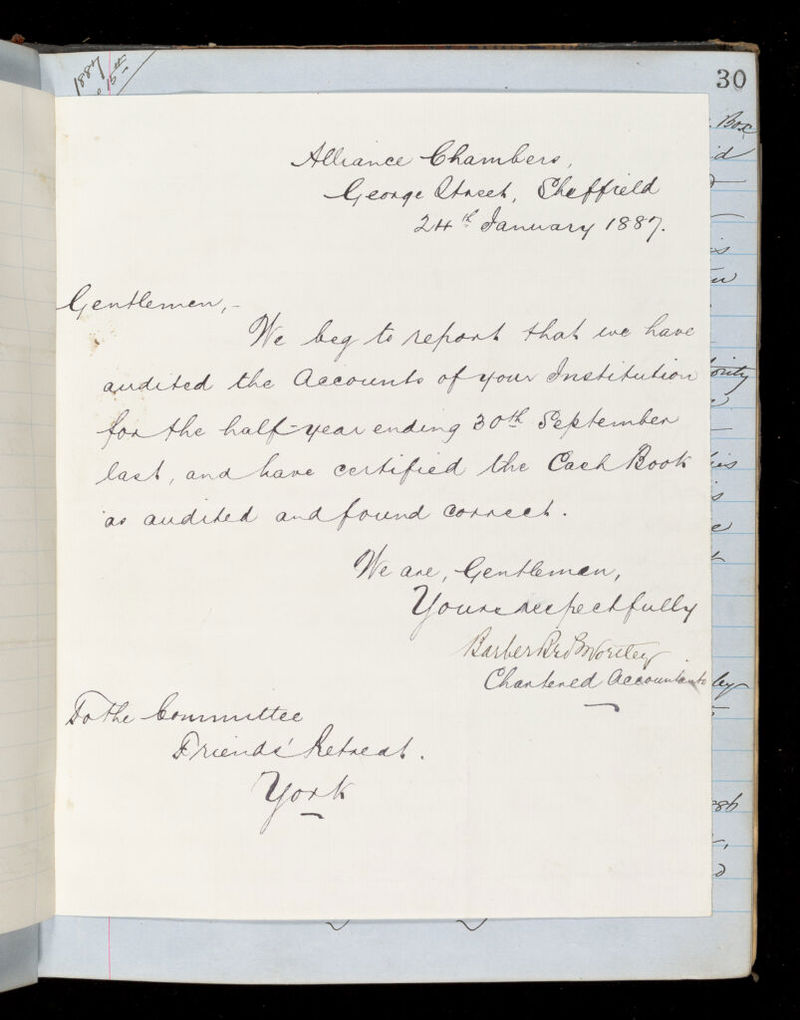 1887
15th
30
Box
Alliance Chambers,
George Street, Sheffield
24th January 1887.
Gentlemen,-
We beg to report that we have
audited the Accounts of your Institution
for the half-year ending 30th September
last, and have certified the Cash Book
as audited and found correct.
We are, Gentlemen,
Yours respectfully
Barber Bros & Wortley
Chartered Accountants
To the Committee
Friends' Retreat.
York